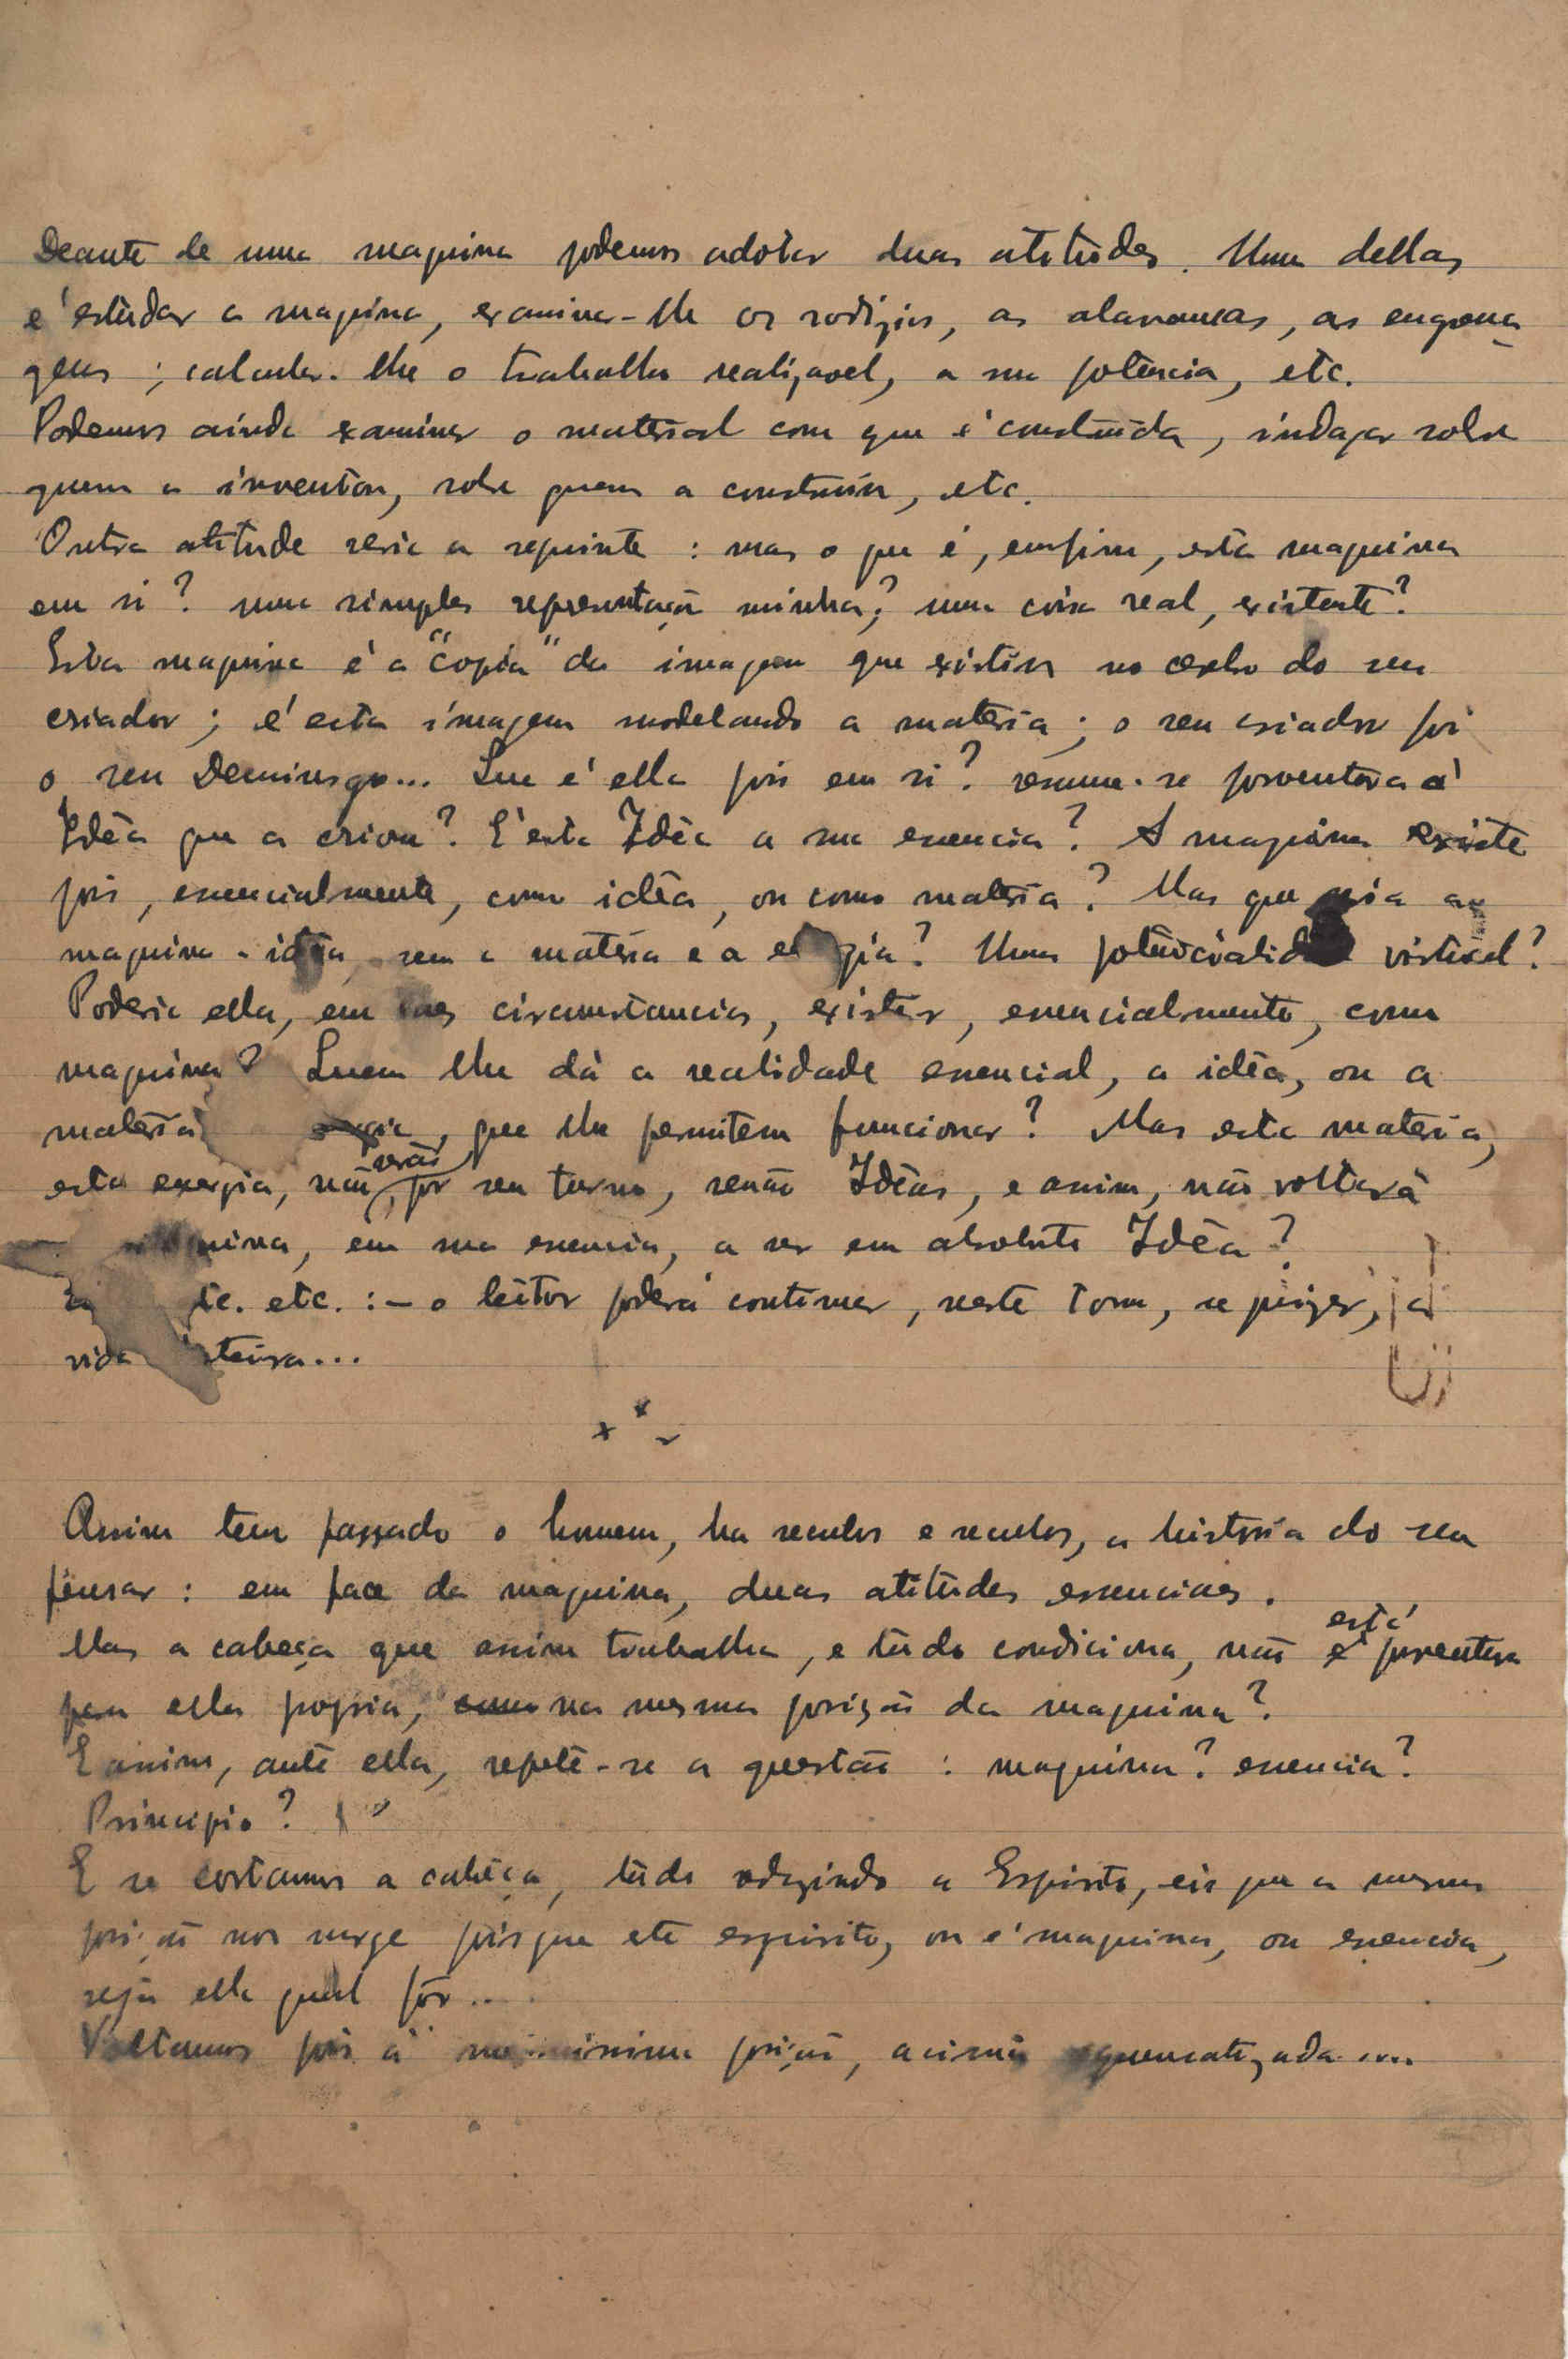 Deante de uma maquina podemos adotar duas atitudes. Uma dellas
é estudar a maquina, examinar-lhe os rodizios, as alavancas, as engrena
gens ; calcular-lhe o trabalho realizavel, a sua potencia, etc.
Podemos ainda examinar o material com que é construida, indagar sobre
quem a inventou, sobre quem a construiu, etc.
Outra atitude seria a seguinte : mas o que é, emfim, esta maquina
em si? uma simples representação minha? uma coisa real, existente?
Esta maquina é a "copia" da imagem que existiu no cerebro do seu
criador ; é esta imagem modelando a materia ; o seu criador foi
o seu Demiurgo... Que é ella pois em si? resume-se porventura á
Idèa que a criou? É esta Idèa a sua essencia? A maquina existe
pois, essencialmente, como idèa, ou como materia? Mas que
maquina-idèa, sem a materia e a ? Uma virtual?
Poderia ella, em circumstancias, existir, essencialmente, como
maquina? Quem lhe dá a realidade essencial, a idèa, ou a
materia , que lhe permitem funcionar? Mas esta materia,
esta energia, não serão, por seu turno, senão Idèas, e assim, não voltará
, em sua essencia, a ser em absoluto Idèa?
etc. :- o leitor poderá continuar, neste tom, se quizer, a
vida inteira...
Assim tem passado o homem, ha seculos e seculos, a historia do seu
pensar : em face da maquina, duas atitudes essenciaes.
Mas a cabeça que assim trabalha, e tudo condiciona, não está porventura
para ella propria, na mesma posição da maquina?
E assim, ante ella, repete-se a questão : maquina? essencia?
Principio?
E se cortamos a cabeça, tudo reduzindo a Espirito, eis que a mesma
posição nos surge pois que este espirito, ou é maquina, ou essencia,
seja ella qual fôr...
Voltamos pois á posição, acima esquematizada....